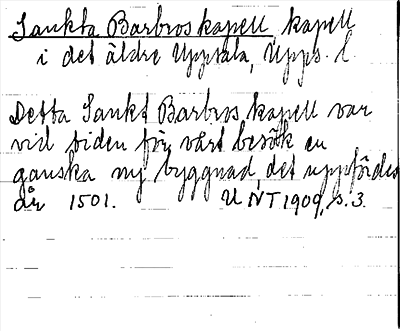 Sankta Barbros kapell, kapell
i det äldre Upptala, Upps. l
Detta Sankt Barbros kapell var
vid tiden för vårt besök en
ganska ny byggnad, det uppfördes
år 1501. UNT 1909, s. 3.